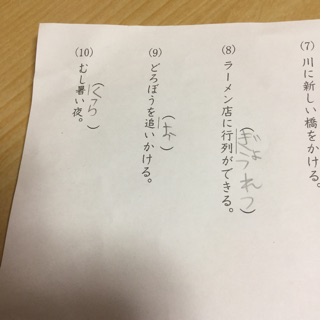 (7) 川に新しい橋をかける。
(8) ラーメン店に行列ができる。
(ぎょうれつ)
(9) どろぼうを追いかける。
(10) むし暑い夜。